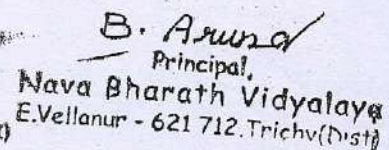 B. Arun
Principal,
Nava Bharath Vidyalaya
E.Vellanur - 621 712. Trichy(Dist)